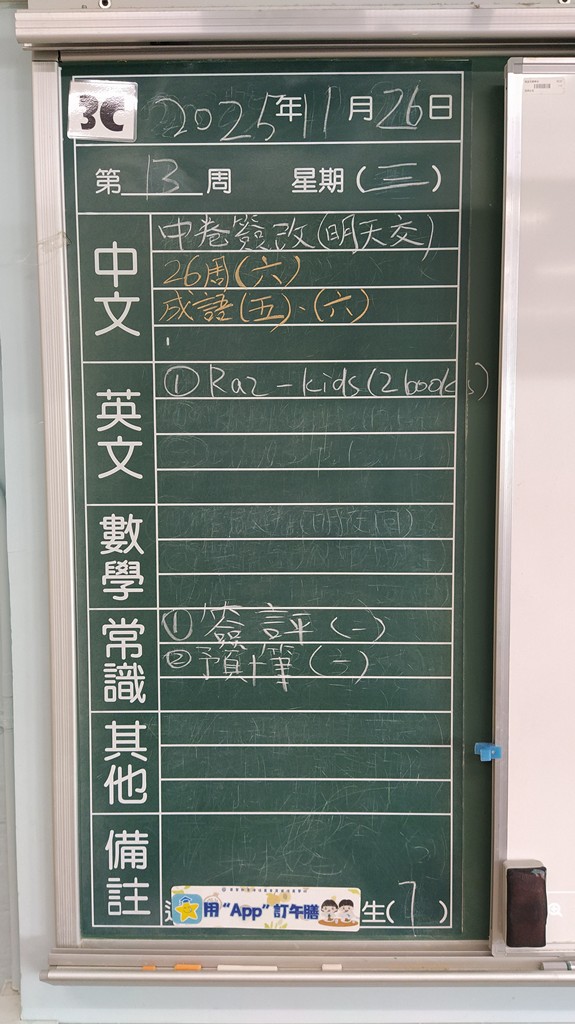 3C
2025年11月26日
第13周 星期(三)
中文
中卷簽改(明天交)
26周(六)
成語(五)、(六)
英文
① Raz-kids(2 books)
數學
常識
① 簽評(一)
② 預+筆(一)
其他
備註
用“App”訂午膳
生(7)